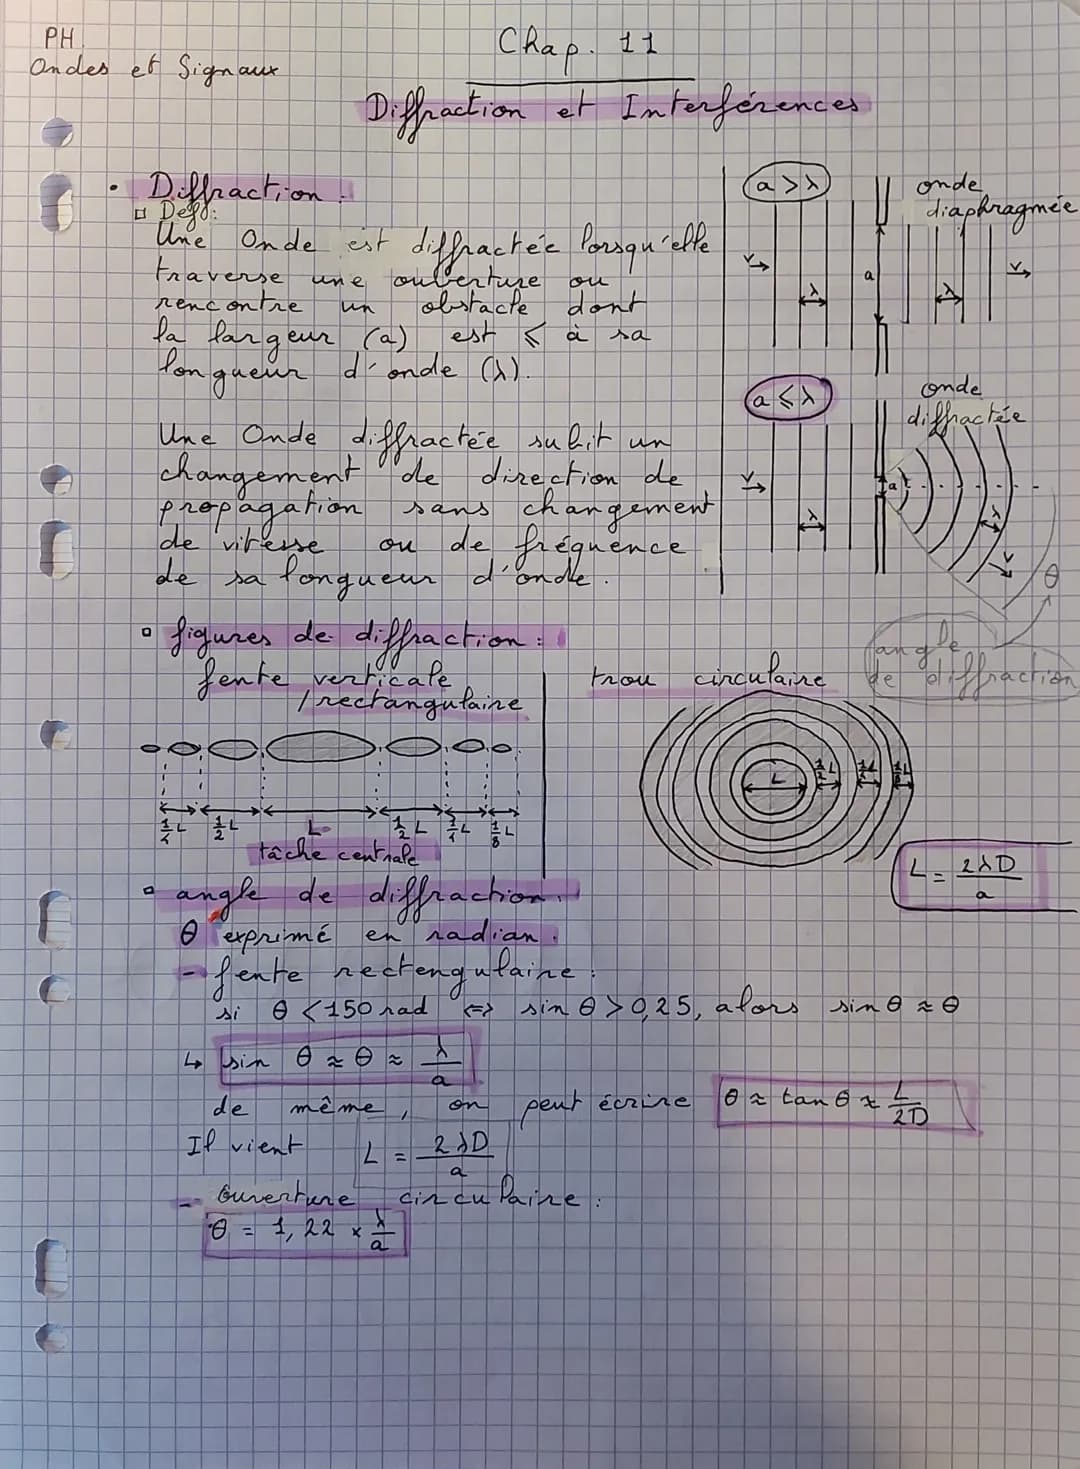 PH
Ondes et Signaux
Chap. 11
Diffraction et Interférences
• Diffraction :
Def°:
Une Onde est diffractée lorsqu'elle
traverse une ouverture ou
rencontre un obstacle dont
la largeur (a) est ⩽ à sa
longueur d'onde (λ).
Une Onde diffractée subit un
changement de direction de
propagation sans changement
de vitesse ou de fréquence
de sa longueur d'onde.
a > λ
onde
diaphragmée
v
λ
a
λ
v
a ⩽ λ
onde
diffractée
v
λ
a
λ
v
θ
angle
de diffraction
▫ figures de diffraction :
fente verticale
/ rectangulaire
1/4 L 1/2 L L 1/2 L 1/4 L 1/8 L
tâche centrale
trou circulaire
L 1/2 L 1/4 L 1/8 L
L = 2λD/a
▫ angle de diffraction.
θ exprimé en radian.
- fente rectengulaire :
si θ < 150 rad <=> sin θ > 0,25, alors sin θ ≈ θ
↳ sin θ ≈ θ ≈ λ/a
de même, on peut écrire θ ≈ tan θ ≈ L/2D
Il vient L = 2λD/a
- Ouverture circulaire :
θ = 1,22 × λ/a